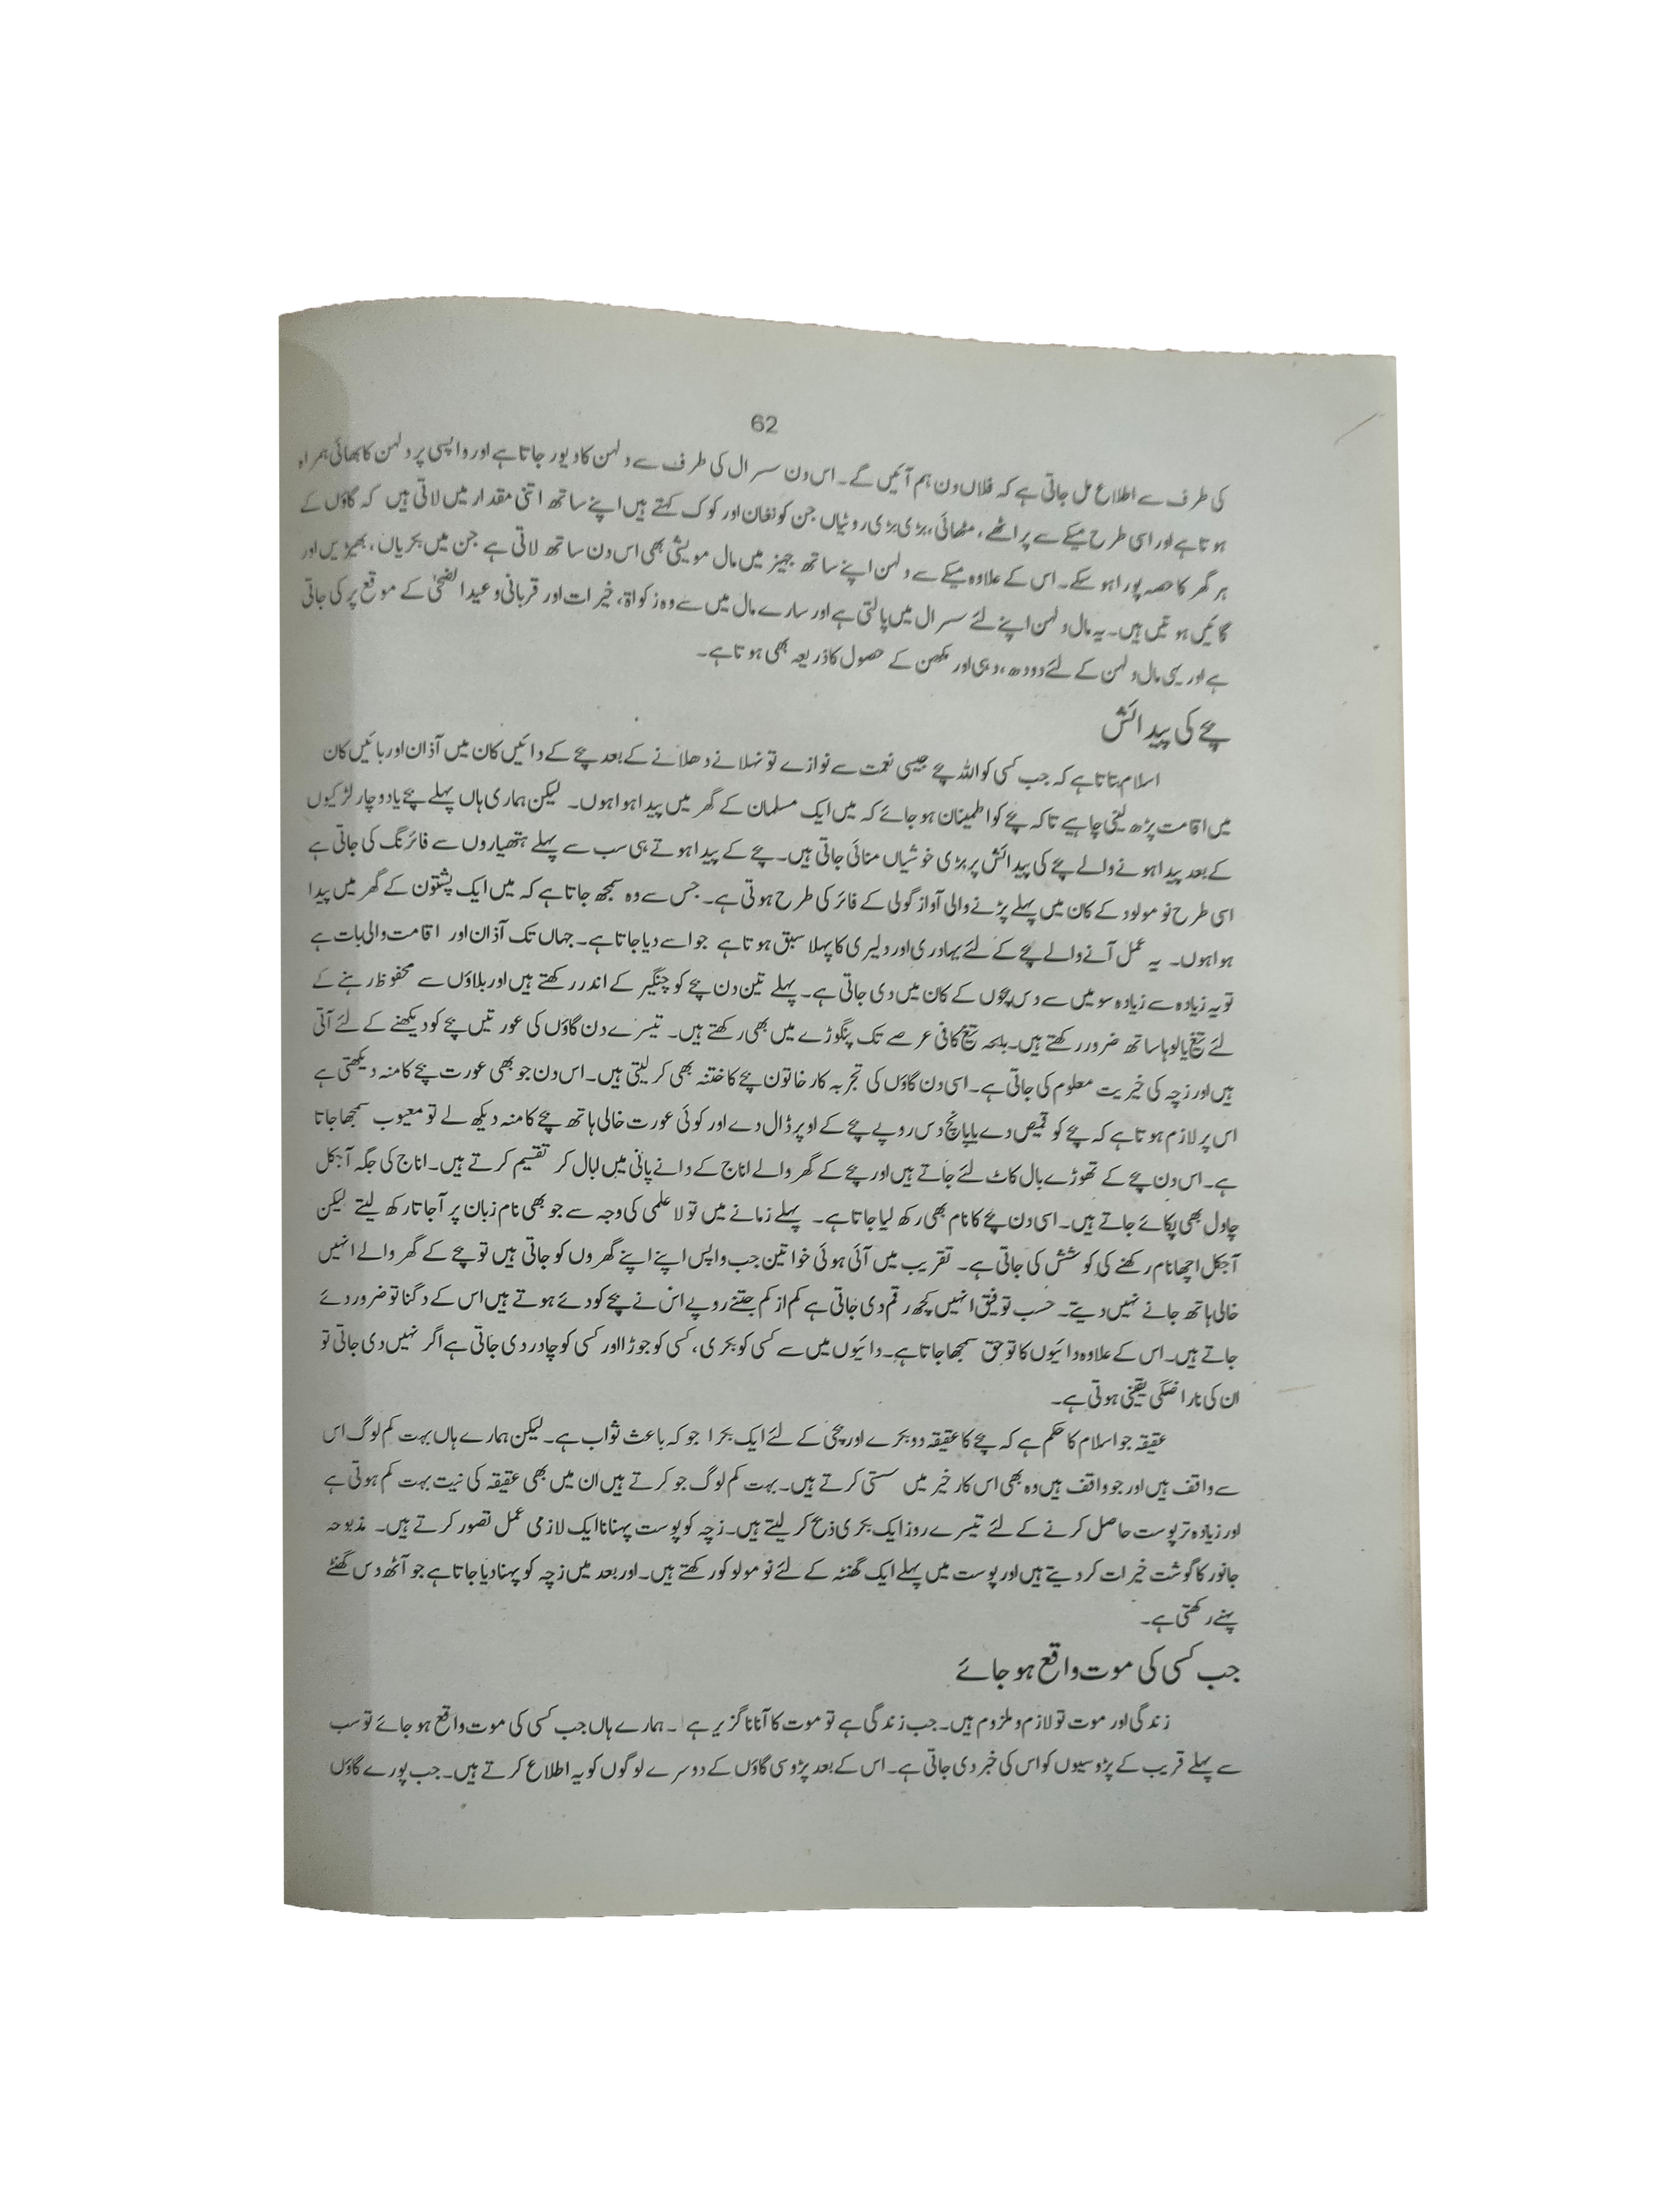 62
کی طرف سے اطلاع مل جاتی ہے کہ فلاں دن ہم آئیں گے۔ اس دن سسرال کی طرف سے دلہن کا دیور جاتا ہے اور واپسی پر دلہن کا بھائی ہمراہ
ہوتا ہے اور اسی طرح میکے سے پراٹھے، مٹھائی، بڑی بڑی روٹیاں جن کو نغان اور کوک کہتے ہیں اپنے ساتھ اتنی مقدار میں لاتی ہیں کہ گاؤں کے
ہر گھر کا حصہ پورا ہو سکے۔ اس کے علاوہ میکے سے دلہن اپنے ساتھ جہیز میں مال مویشی بھی اس دن ساتھ لاتی ہے جن میں بکریاں، بھیڑیں اور
گائیں ہوتیں ہیں۔ یہ مال دلہن اپنے لئے سسرال میں پالتی ہے اور سارے مال میں سے وہ زکواۃ، خیرات اور قربانی و عید الضحٰی کے موقع پر کی جاتی
ہے اور یہی مال دلہن کے لئے دودھ، دہی اور مکھن کے حصول کا ذریعہ بھی ہوتا ہے۔
بچے کی پیدائش
اسلام بتاتا ہے کہ جب کسی کو اللہ بچے جیسی نعمت سے نوازے تو نہلانے دھلانے کے بعد بچے کے دائیں کان میں آذان اور بائیں کان
میں اقامت پڑھ لینی چاہیے تاکہ بچے کو اطمینان ہو جائے کہ میں ایک مسلمان کے گھر میں پیدا ہوا ہوں۔ لیکن ہماری ہاں پہلے بچے یا دو چار لڑکیوں
کے بعد پیدا ہونے والے بچے کی پیدائش پر بڑی خوشیاں منائی جاتی ہیں۔ بچے کے پیدا ہوتے ہی سب سے پہلے ہتھیاروں سے فائرنگ کی جاتی ہے
اسی طرح نومولود کے کان میں پہلے پڑنے والی آواز گولی کے فائر کی طرح ہوتی ہے۔ جس سے وہ سمجھ جاتا ہے کہ میں ایک پشتون کے گھر میں پیدا
ہوا ہوں۔ یہ عمل آنے والے بچے کے لئے بہادری اور دلیری کا پہلا سبق ہوتا ہے جو اسے دیا جاتا ہے۔ جہاں تک آذان اور اقامت والی بات ہے
تو یہ زیادہ سے زیادہ سو میں سے دس بچوں کے کان میں دی جاتی ہے۔ پہلے تین دن بچے کو چنگیر کے اندر رکھتے ہیں اور بلاؤں سے محفوظ رہنے کے
لئے تیغ یا لوہا ساتھ ضرور رکھتے ہیں۔ بلکہ تیغ کافی عرصے تک پنگوڑے میں بھی رکھتے ہیں۔ تیسرے دن گاؤں کی عورتیں بچے کو دیکھنے کے لئے آتی
ہیں اور زچہ کی خیریت معلوم کی جاتی ہے۔ اسی دن گاؤں کی تجربہ کار خاتون بچے کا ختنہ بھی کر لیتی ہیں۔ اس دن جو بھی عورت بچے کا منہ دیکھتی ہے
اس پر لازم ہوتا ہے کہ بچے کو قمیص دے یا پانچ دس روپے بچے کے اوپر ڈال دے اور کوئی عورت خالی ہاتھ بچے کا منہ دیکھ لے تو معیوب سمجھا جاتا
ہے۔ اس دن بچے کے تھوڑے بال کاٹ لئے جاتے ہیں اور بچے کے گھر والے اناج کے دانے پانی میں ابال کر تقسیم کرتے ہیں۔ اناج کی جگہ آجکل
چاول بھی پکائے جاتے ہیں۔ اسی دن بچے کا نام بھی رکھ لیا جاتا ہے۔ پہلے زمانے میں تو لا علمی کی وجہ سے جو بھی نام زبان پر آجاتا رکھ لیتے لیکن
آجکل اچھا نام رکھنے کی کوشش کی جاتی ہے۔ تقریب میں آئی ہوئی خواتین جب واپس اپنے اپنے گھروں کو جاتی ہیں تو بچے کے گھر والے انہیں
خالی ہاتھ جانے نہیں دیتے۔ حسب توفیق انہیں کچھ رقم دی جاتی ہے کم از کم جتنے روپے اس نے بچے کو دئے ہوتے ہیں اس کے دگنا تو ضرور دئے
جاتے ہیں۔ اس کے علاوہ دائیوں کا تو حق سمجھا جاتا ہے۔ دائیوں میں سے کسی کو بکری، کسی کو جوڑا اور کسی کو چادر دی جاتی ہے اگر نہیں دی جاتی تو
ان کی ناراضگی یقینی ہوتی ہے۔
عقیقہ جو اسلام کا حکم ہے کہ بچے کا عقیقہ دو بکرے اور بچی کے لئے ایک بکرا جو کہ باعث ثواب ہے۔ لیکن ہمارے ہاں بہت کم لوگ اس
سے واقف ہیں اور جو واقف ہیں وہ بھی اس کار خیر میں سستی کرتے ہیں۔ بہت کم لوگ جو کرتے ہیں ان میں بھی عقیقہ کی نیت بہت کم ہوتی ہے
اور زیادہ تر پوست حاصل کرنے کے لئے تیسرے روز ایک بکری ذبح کر لیتے ہیں۔ زچہ کو پوست پہنانا ایک لازمی عمل تصور کرتے ہیں۔ مذبوحہ
جانور کا گوشت خیرات کر دیتے ہیں اور پوست میں پہلے ایک گھنٹہ کے لئے نومولو کو رکھتے ہیں۔ اور بعد میں زچہ کو پہنا دیا جاتا ہے جو آٹھ دس گھنٹے
پہنے رکھتی ہے۔
جب کسی کی موت واقع ہو جائے
زندگی اور موت تو لازم و ملزوم ہیں۔ جب زندگی ہے تو موت کا آنا ناگزیر ہے۔ ہمارے ہاں جب کسی کی موت واقع ہو جائے تو سب
سے پہلے قریب کے پڑوسیوں کو اس کی خبر دی جاتی ہے۔ اس کے بعد پڑوسی گاؤں کے دوسرے لوگوں کو یہ اطلاع کرتے ہیں۔ جب پورے گاؤں